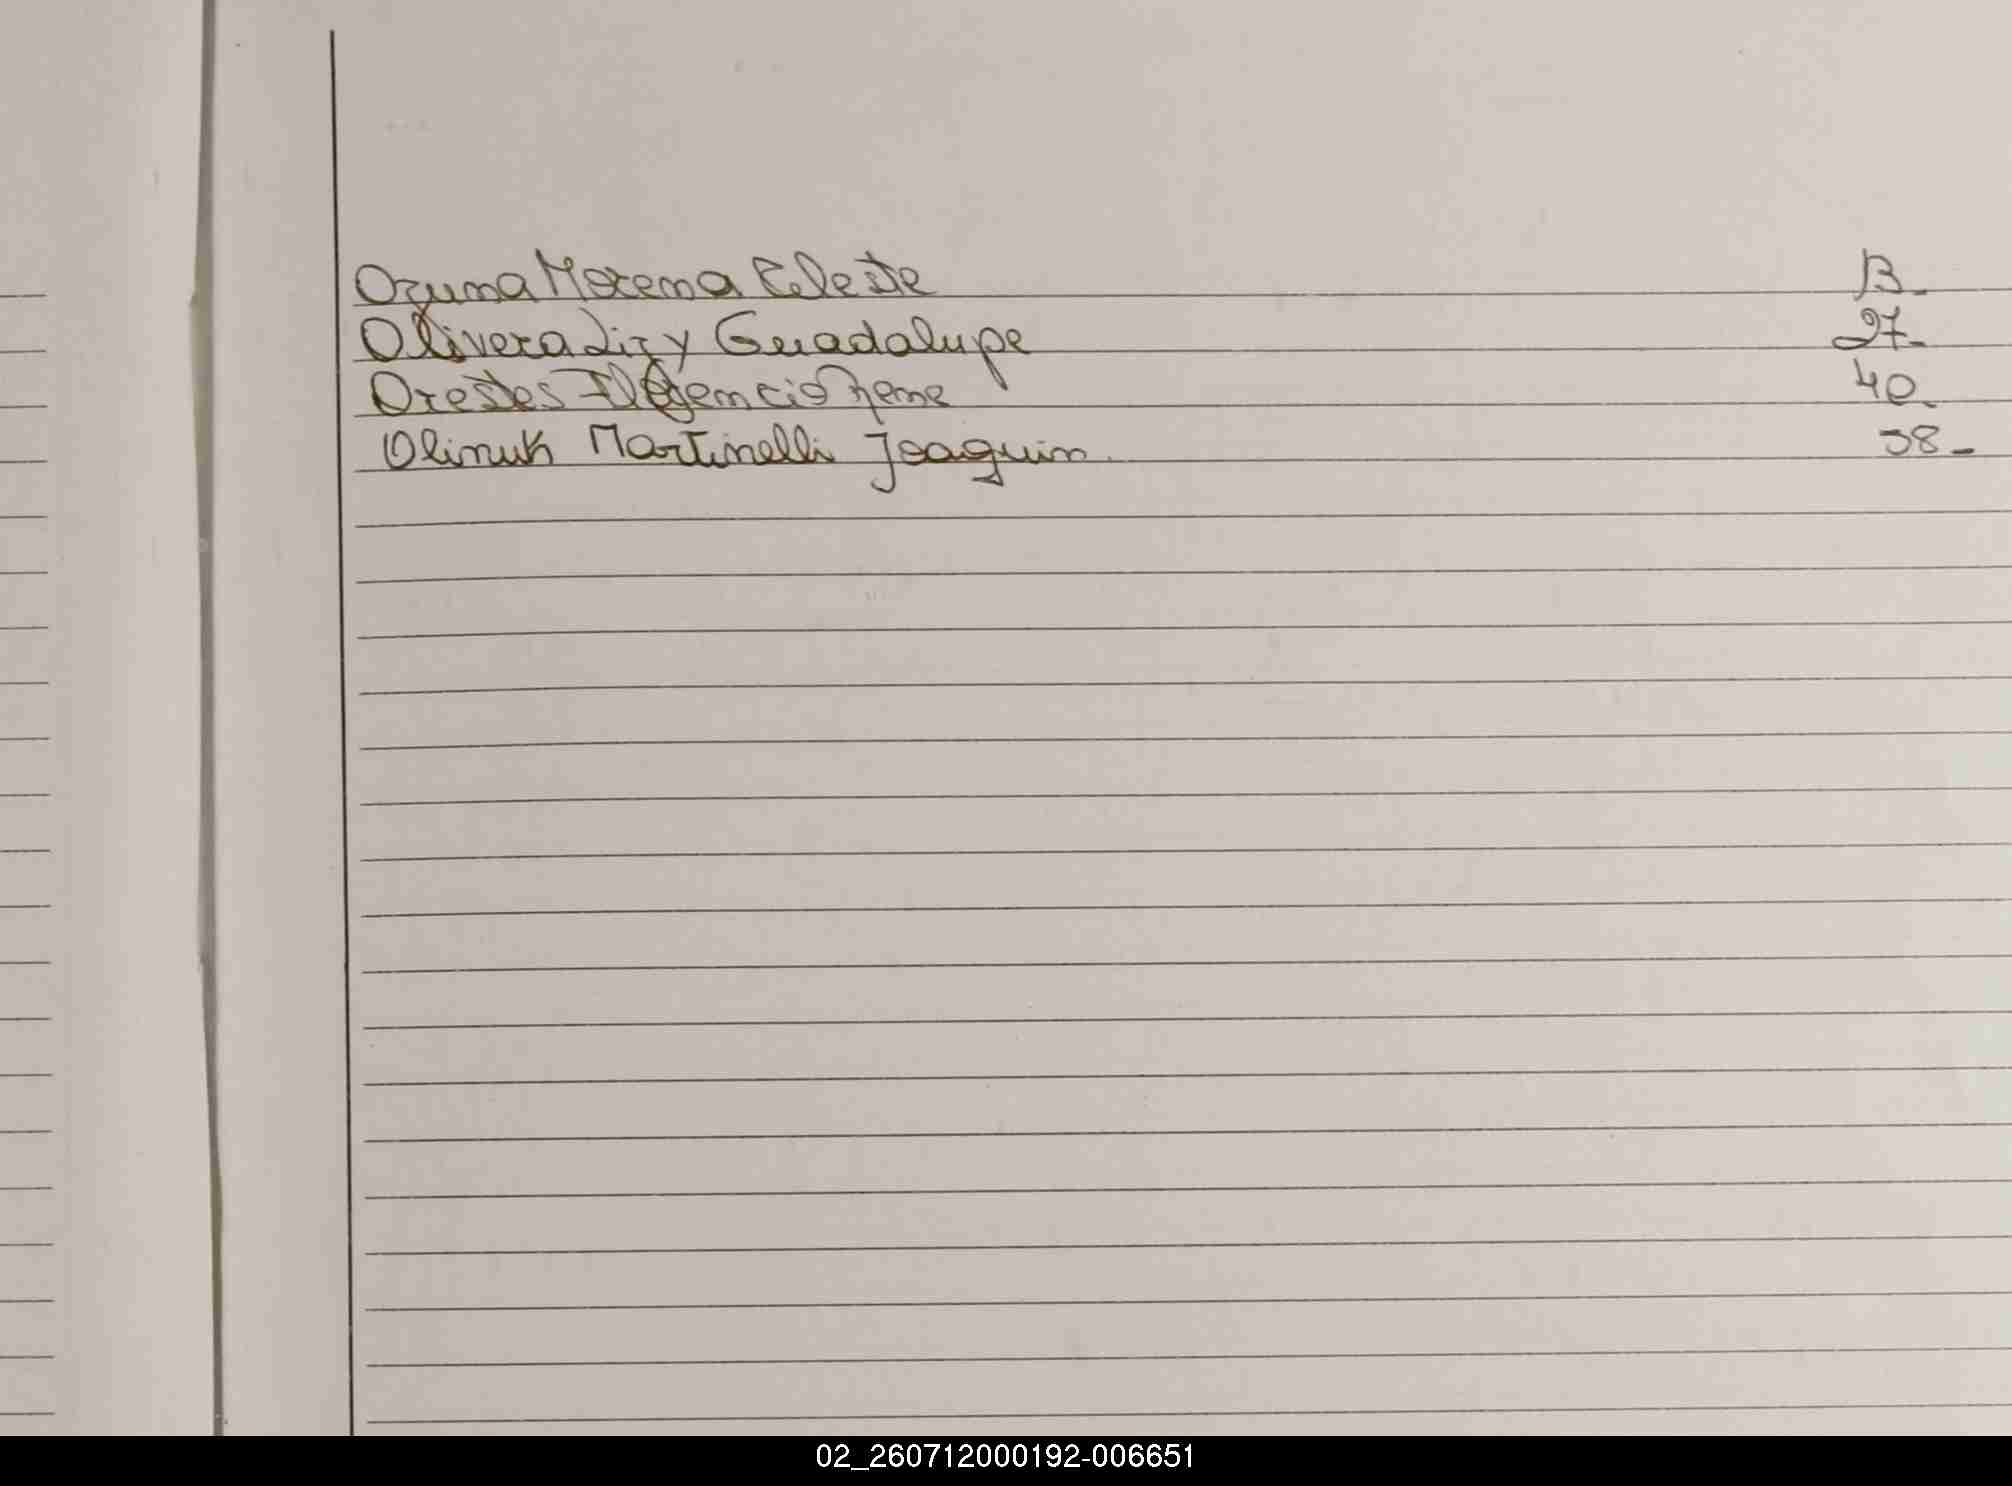 Ozuna Morena Celeste 13-
Olivera Lizy Guadalupe 27-
Orestes Flegencio Rene 40-
Olinuk Martinelli Joaquin. 58-
02_260712000192-006651